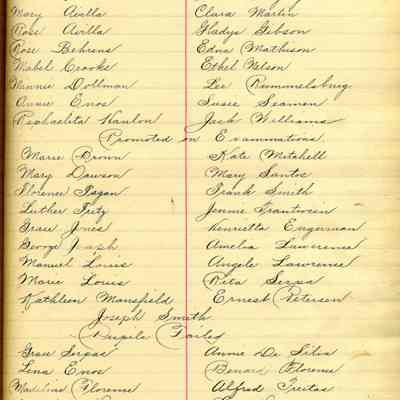 Mary Avilla Clara Martin
Rose Avilla Gladys Gibson
Rose Behrens Edna Mathison
Mabel Crooks Ethel Nelson
Minnie Dollman Lee Rummelsburg
Annie Enos Susie Seamen
Raphaelita Hanlon Jack Williams
Promoted on Examinations.
Marie Brown Kate Mitchell
Mary Dawson Mary Santos
Florence Fagan Frank Smith
Luther Fritz Jennie Trantwein
Grace Jones Henrietta Engerman
George Joseph Amelia Lawrence
Manuel Louis Angele Lawrence
Marie Louis Rita Serpa
Kathleen Mansfield Ernest Peterson
Joseph Smith
Pupils Failed
Grace Serpas Annie De Silva
Lena Enos Benard Florence
Madeline Florence Alfred Freitas